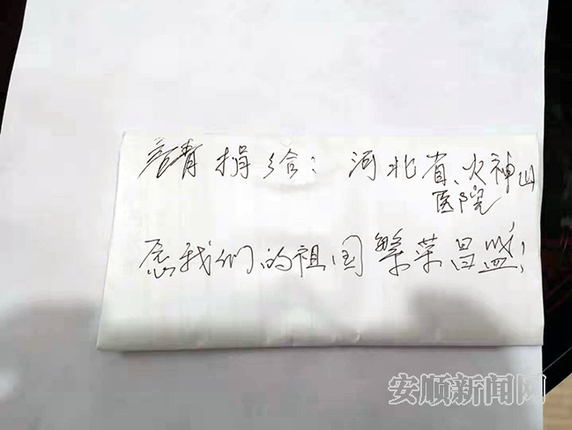 请捐给：河北省、火神山
医院
愿我们的祖国繁荣昌盛！
安顺新闻网